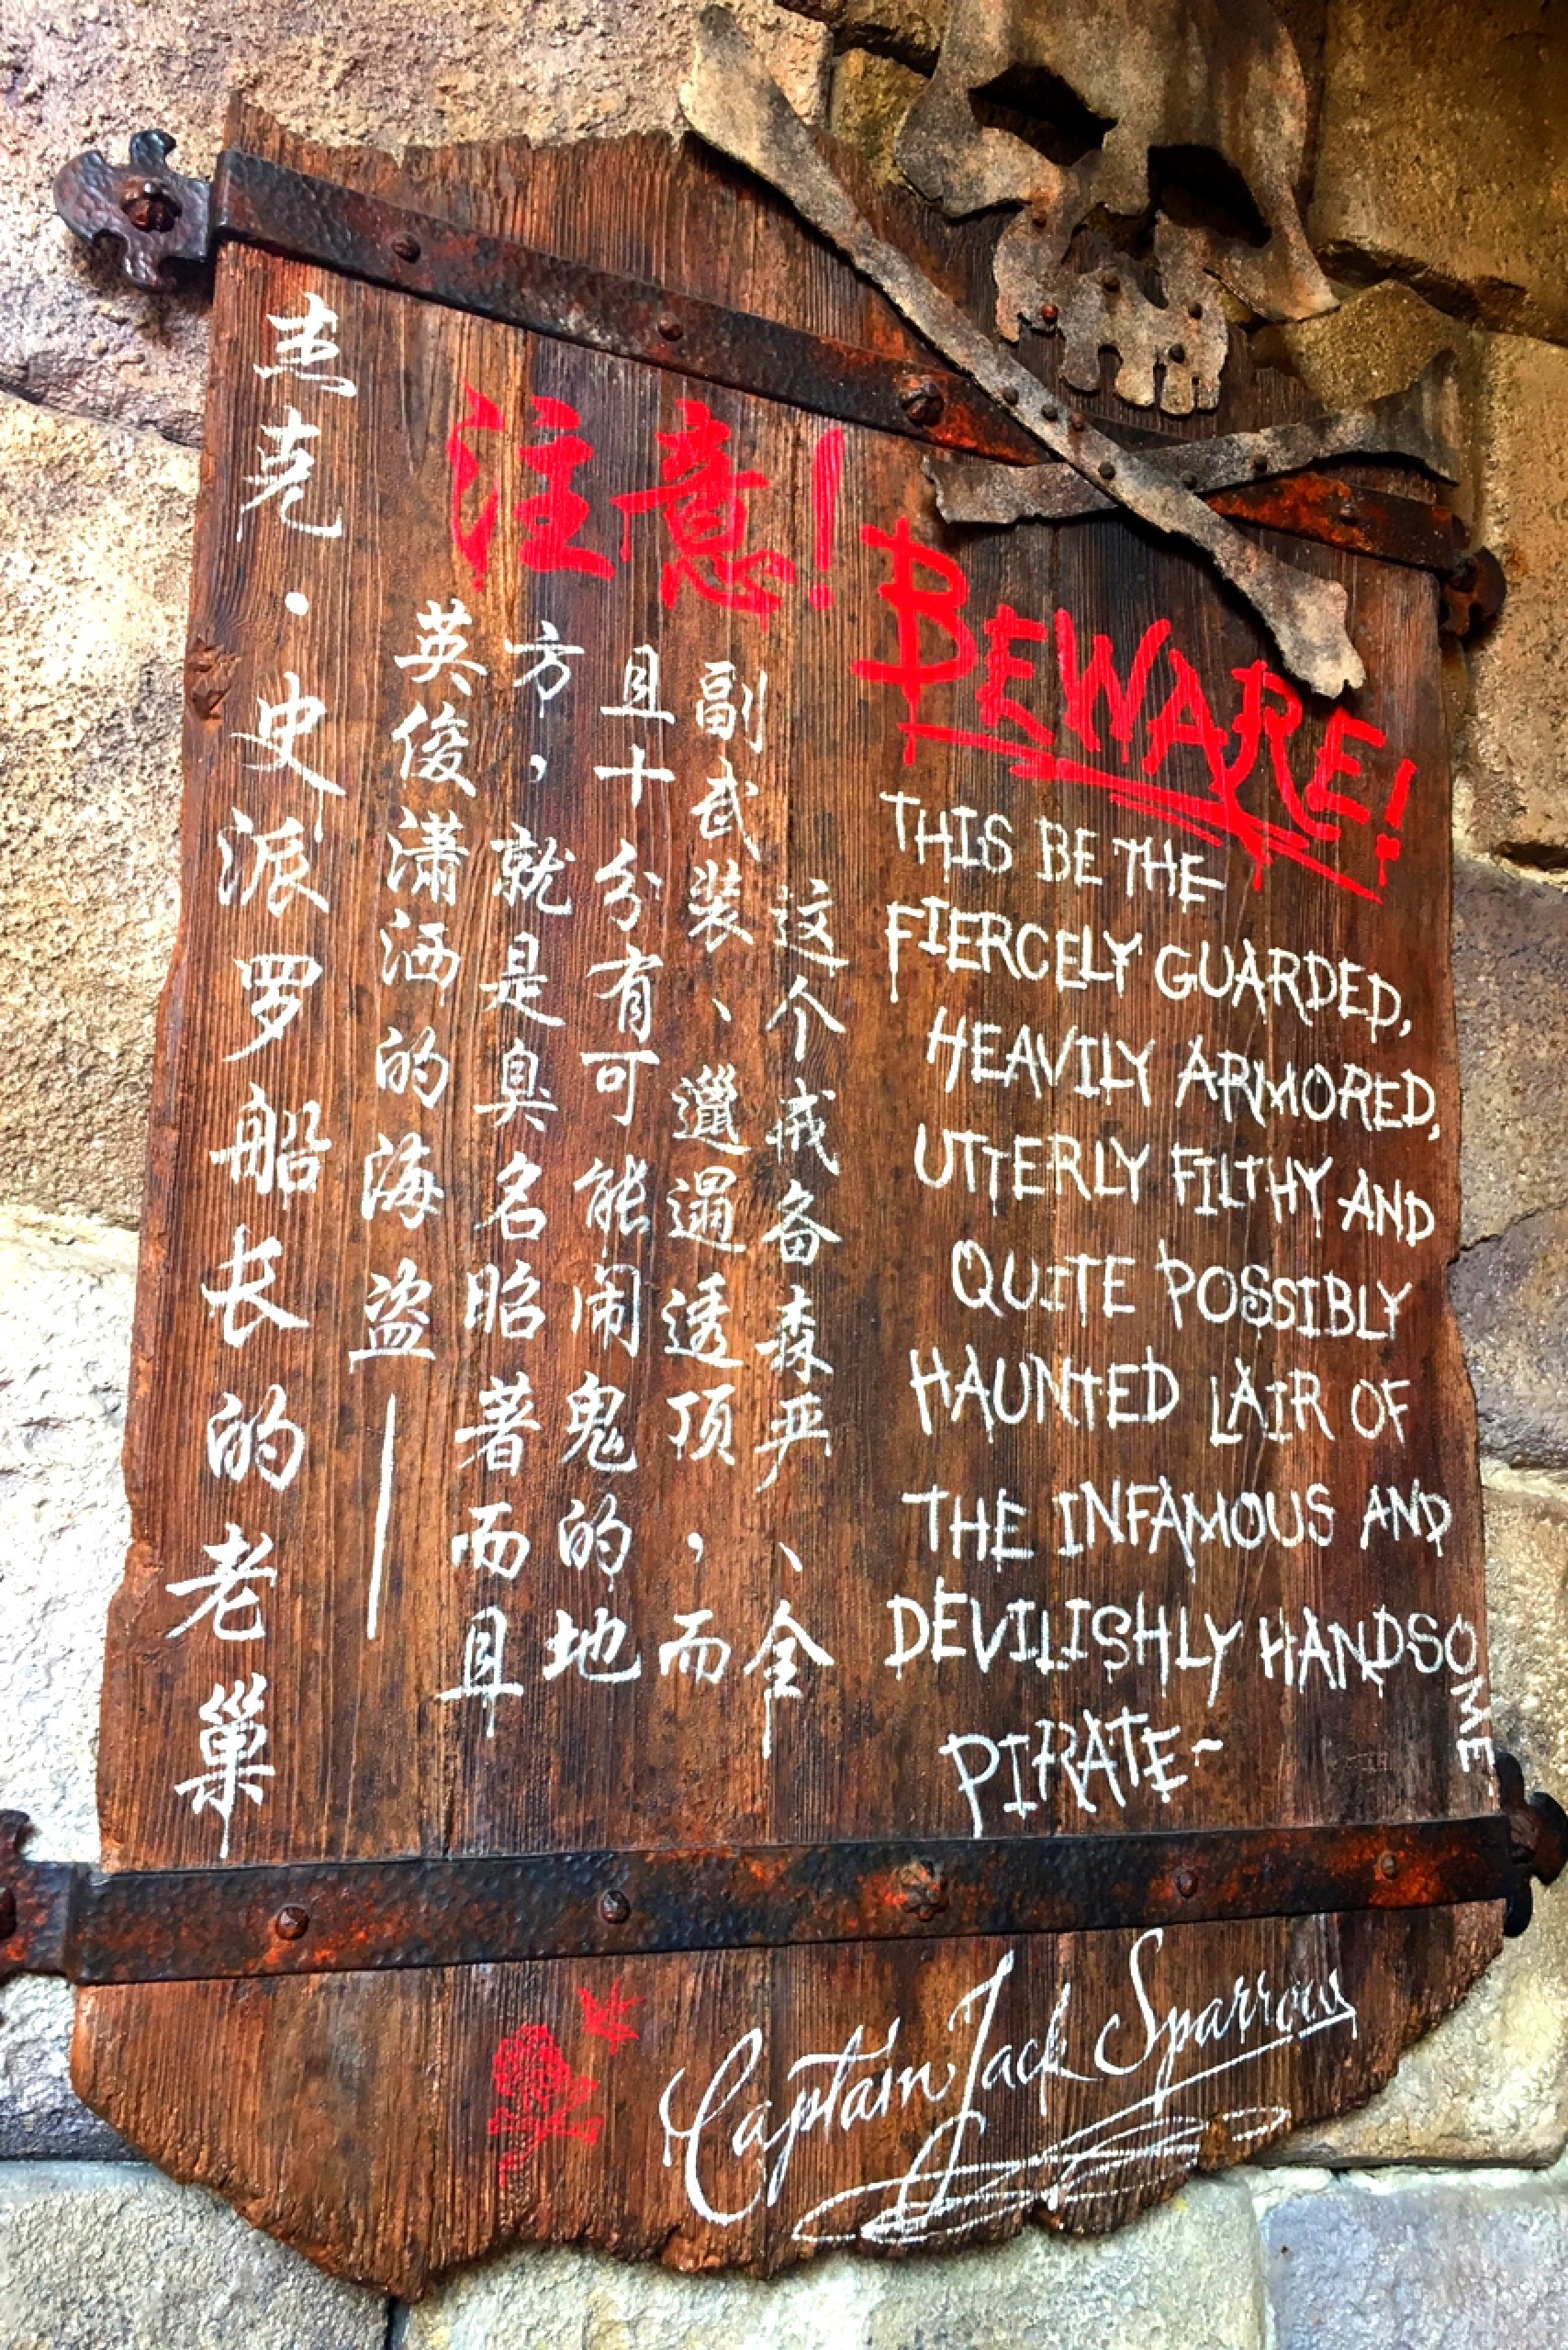 注意!
这个戒备森严、全
副武装、邋遢透顶，而
且十分有可能闹鬼的地
方，就是臭名昭著而且
英俊潇洒的海盗——
杰克·史派罗船长的老巢
BEWARE!
THIS BE THE
FIERCELY GUARDED,
HEAVILY ARMORED,
UTTERLY FILTHY AND
QUITE POSSIBLY
HAUNTED LAIR OF
THE INFAMOUS AND
DEVILISHLY HANDSOME
PIRATE-
Captain Jack Sparrow